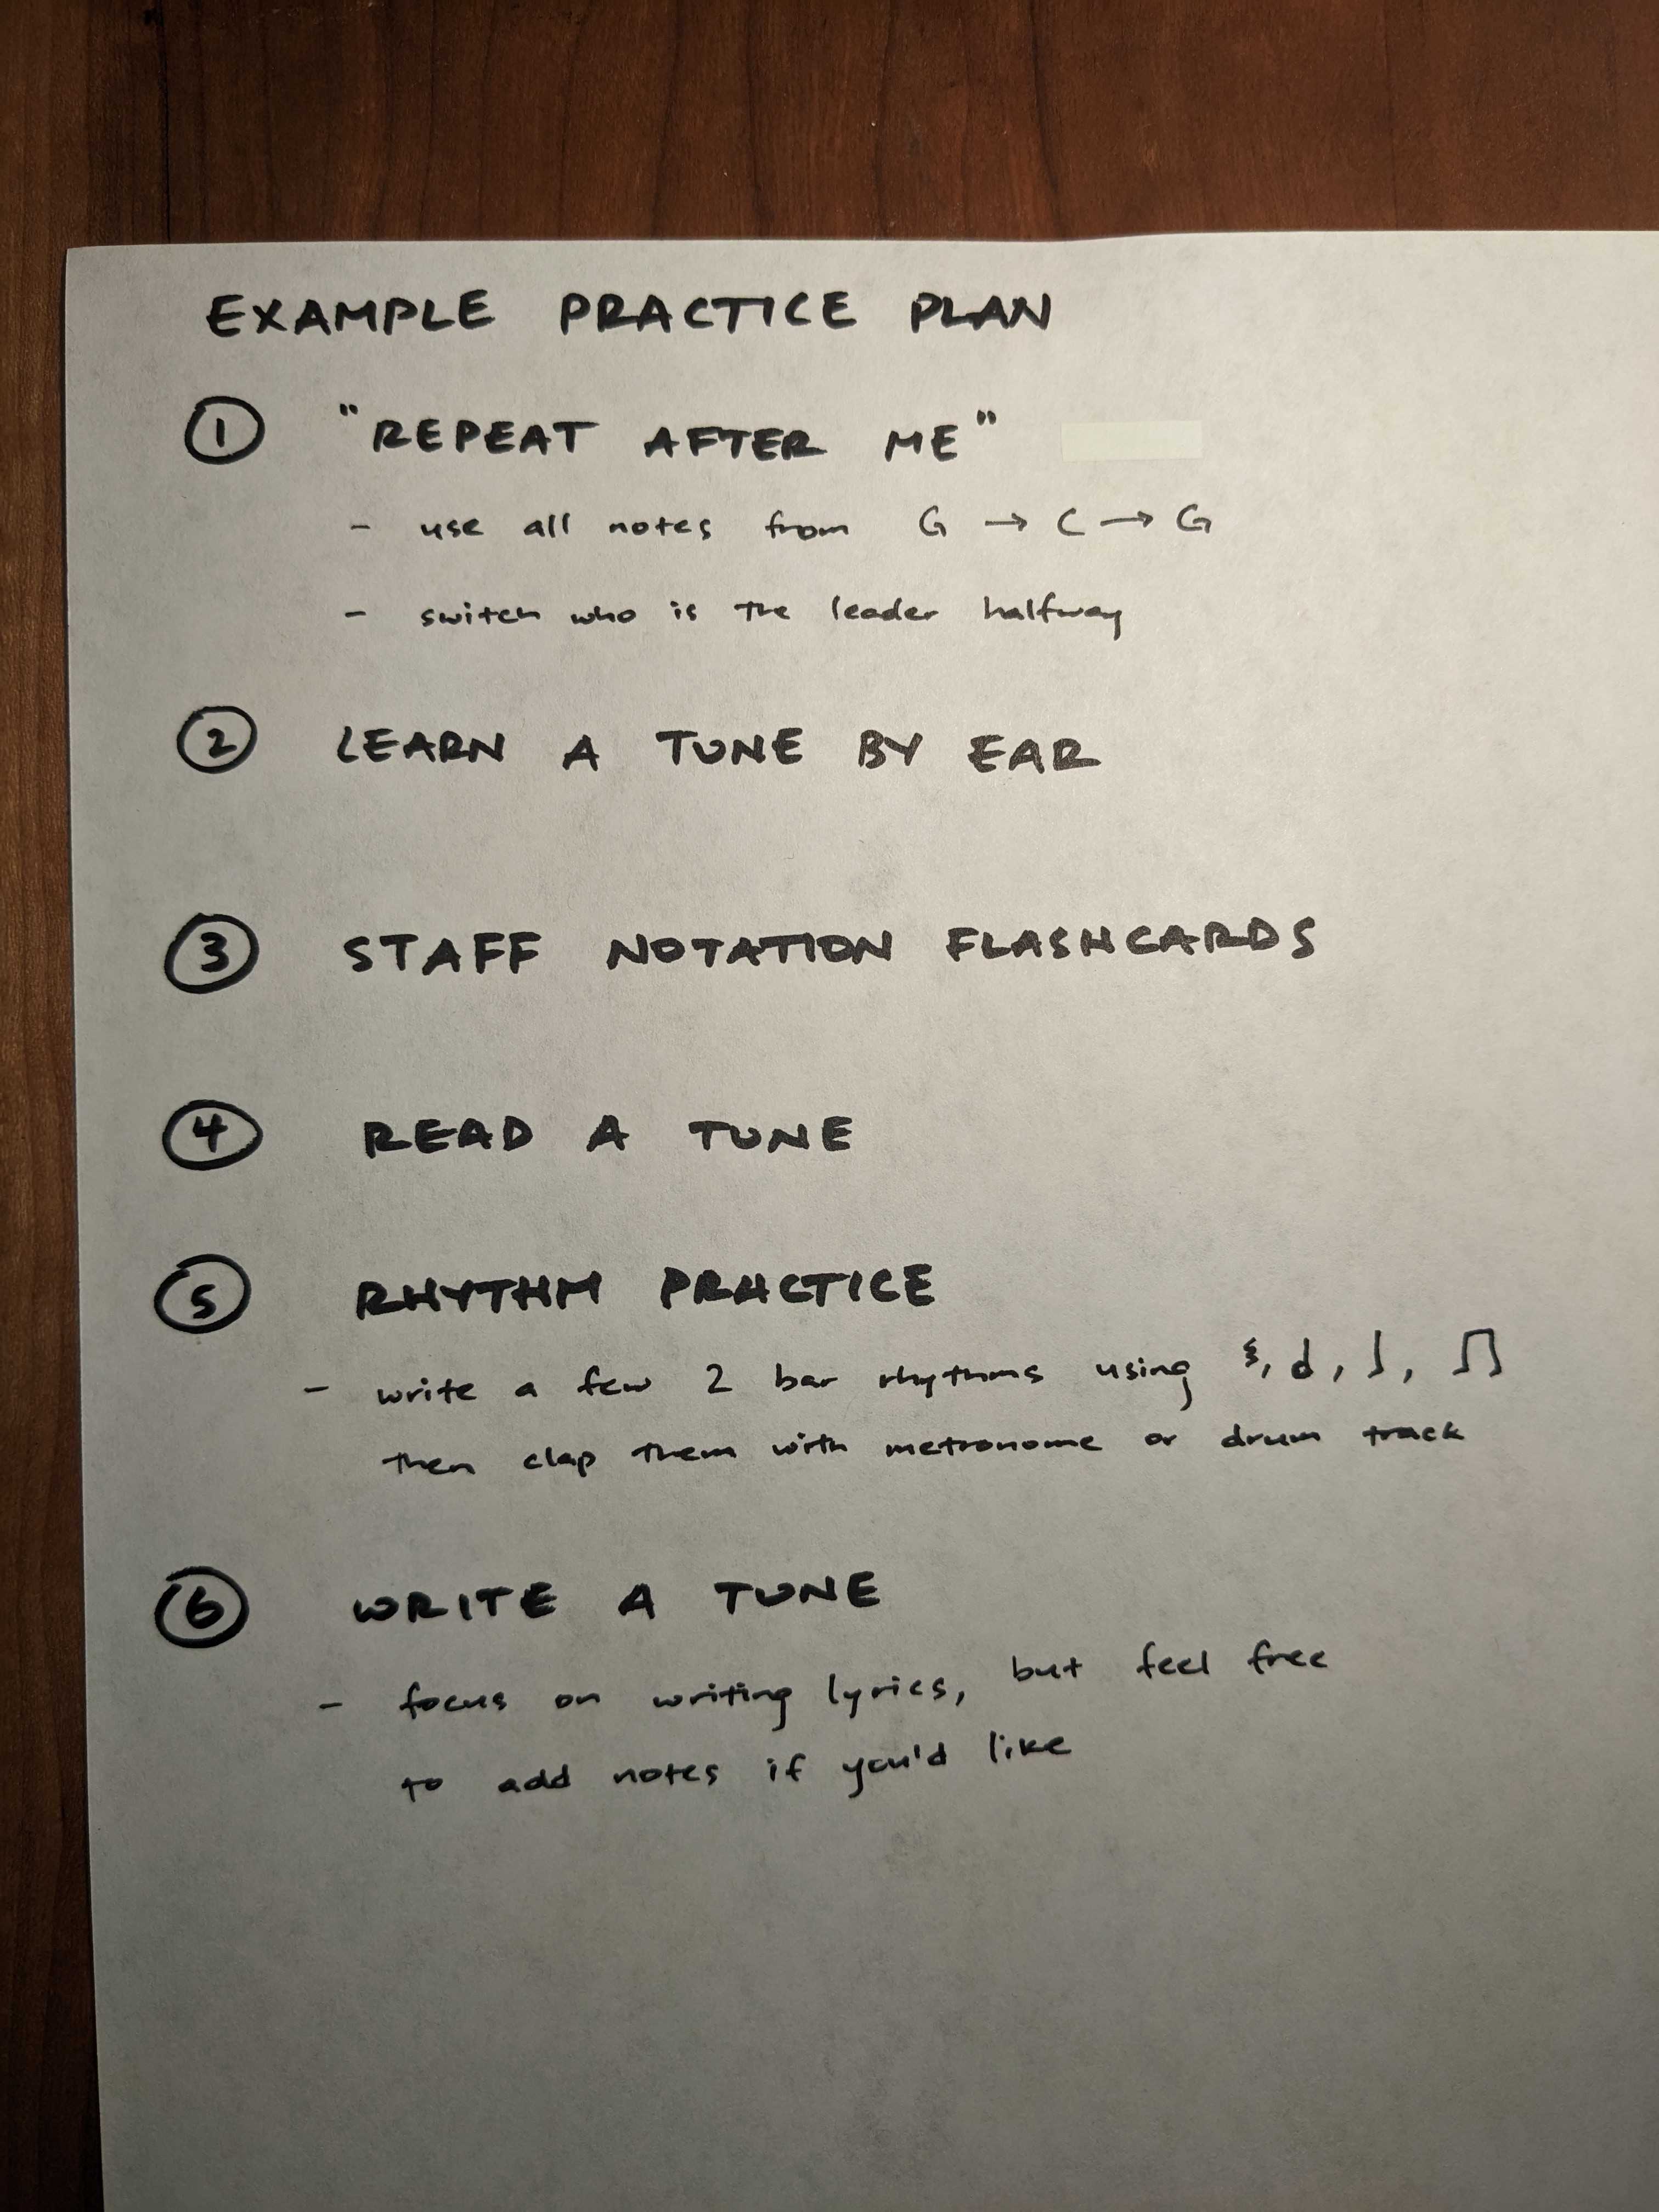 EXAMPLE PRACTICE PLAN
① "REPEAT AFTER ME"
- use all notes from G → C → G
- switch who is the leader halfway
② LEARN A TUNE BY EAR
③ STAFF NOTATION FLASHCARDS
④ READ A TUNE
⑤ RHYTHM PRACTICE
- write a few 2 bar rhythms using 𝄽, 𝅗𝅥, ♩, ♫
then clap them with metronome or drum track
⑥ WRITE A TUNE
- focus on writing lyrics, but feel free
to add notes if you'd like